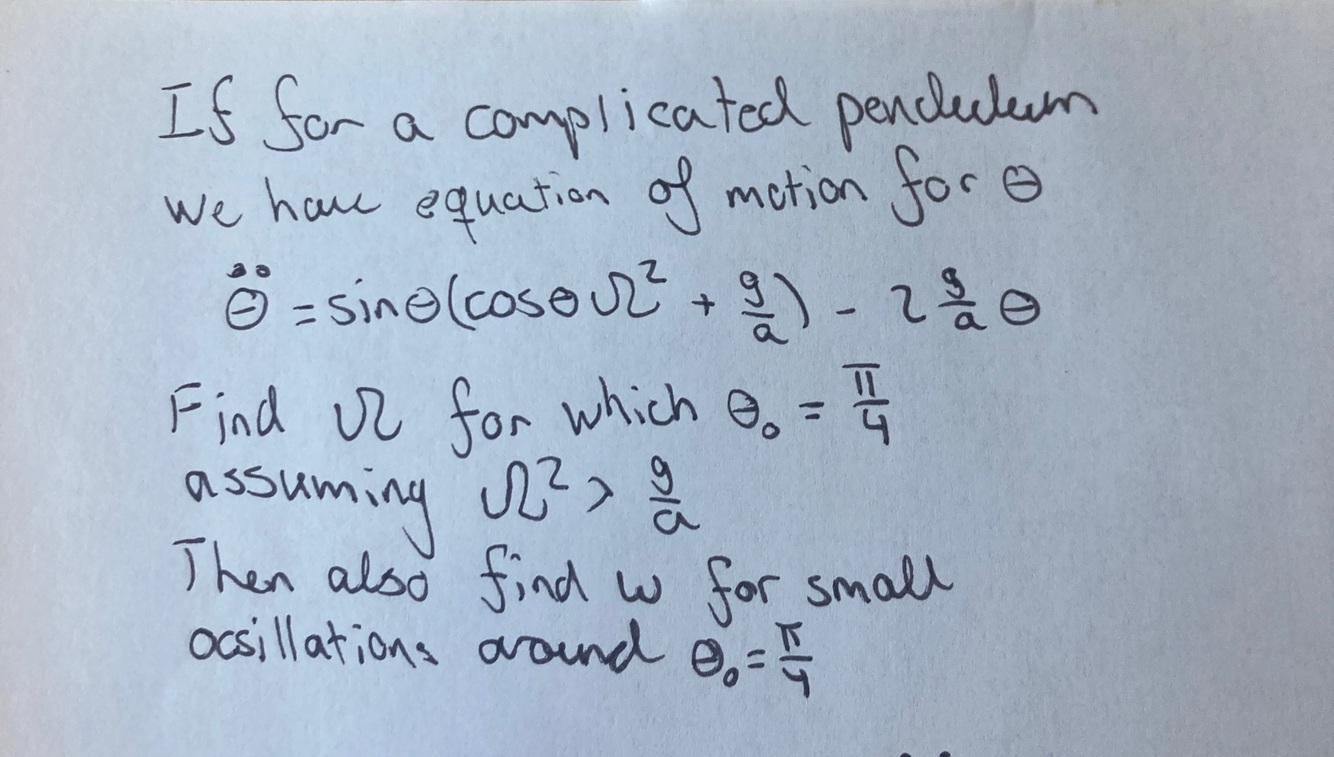 If for a complicated pendulum
we have equation of motion for θ
θ̈ = sinθ(cosθ Ω² + g/a) - 2 g/a θ
Find Ω for which θ₀ = π/4
assuming Ω² > g/a
Then also find ω for small
ocsillations around θ₀ = π/4